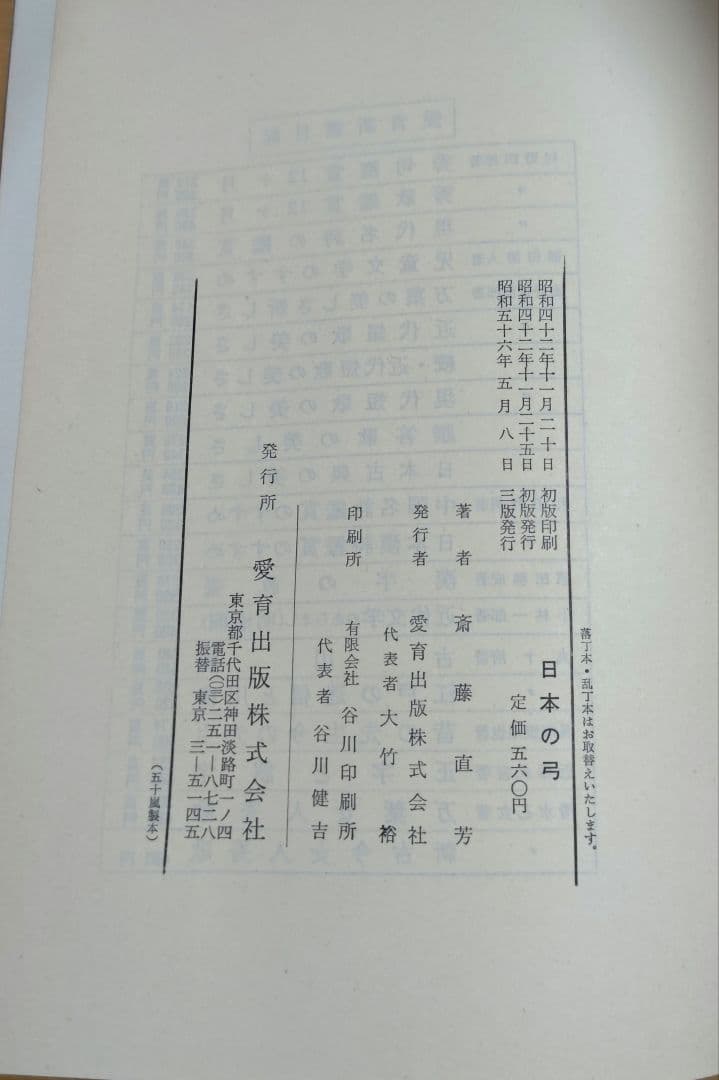 落丁本・乱丁本はお取替えいたします。
昭和四十二年十一月二十日 初版印刷
昭和四十二年十一月二十五日 初版発行
昭和五十六年五月八日 三版発行
日本の弓
定価 五六〇円
著者 斎藤直芳
発行者 愛育出版株式会社
代表者 大竹 裕
印刷所 有限会社 谷川印刷所
代表者 谷川健吉
発行所 愛育出版株式会社
東京都千代田区神田淡路町一ノ四
電話(〇三)二五一―八七二八
振替 東京 三―五一四五
(五十嵐製本)